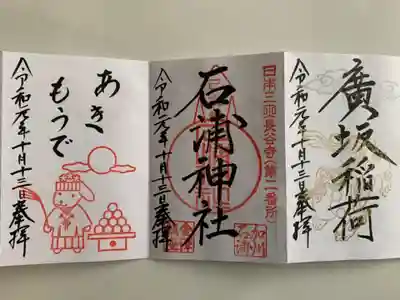 廣坂稲荷
令和元年十月十三日奉拝
日本三処長谷寺(第二番所)
石浦神社
令和元年十月十三日奉拝
あき
もうで
令和元年十月十三日奉拝